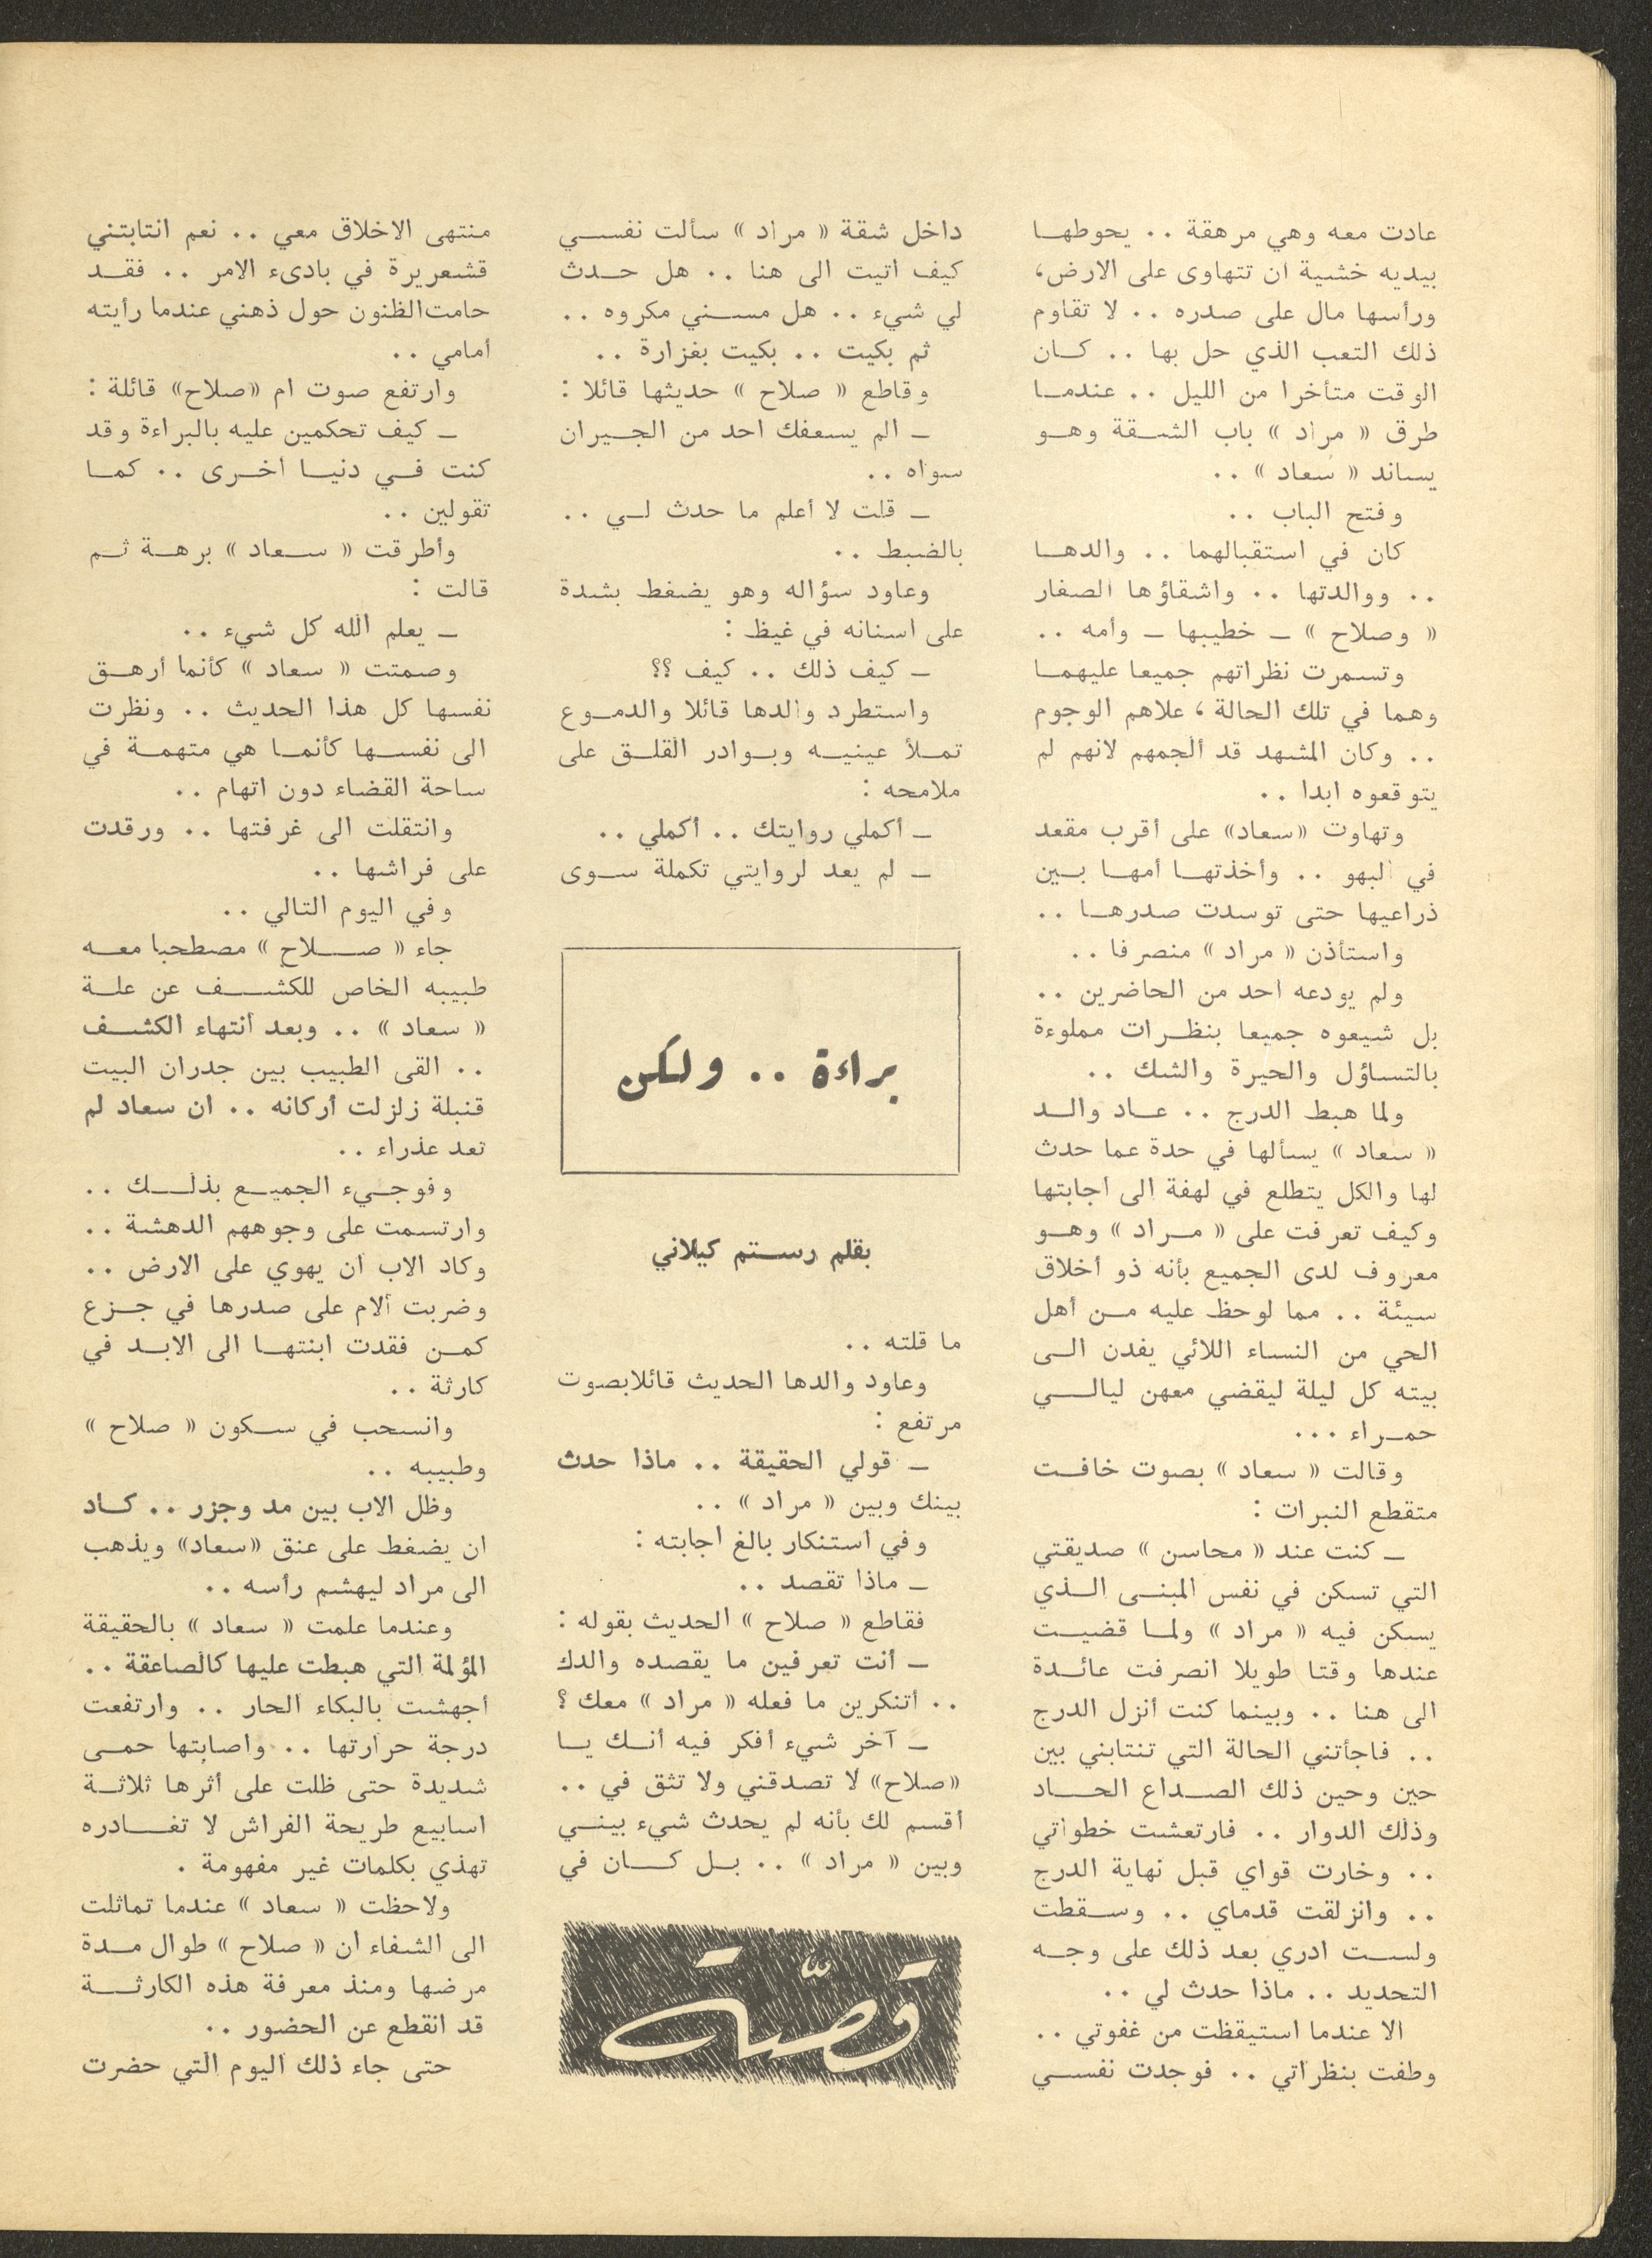 عادت معه وهي مرهقة .. يحوطها
بيديه خشية ان تتهاوى على الارض،
ورأسها مال على صدره .. لا تقاوم
ذلك التعب الذي حل بها .. كان
الوقت متأخرا من الليل .. عندما
طرق « مراد » باب الشقة وهو
يساند « سعاد » ..
وفتح الباب ..
كان في استقبالهما .. والدها
.. ووالدتها .. واشقاؤها الصغار
« وصلاح » – خطيبها – وأمه ..
وتسمرت نظراتهم جميعا عليهما
وهما في تلك الحالة ، علاهم الوجوم
.. وكان المشهد قد ألجمهم لانهم لم
يتوقعوه ابدا ..
وتهاوت «سعاد» على أقرب مقعد
في البهو .. وأخذتها أمها بين
ذراعيها حتى توسدت صدرها ..
واستأذن « مراد » منصرفا ..
ولم يودعه احد من الحاضرين ..
بل شيعوه جميعا بنظرات مملوءة
بالتساؤل والحيرة والشك ..
ولما هبط الدرج .. عاد والد
« سعاد » يسألها في حدة عما حدث
لها والكل يتطلع في لهفة الى اجابتها
وكيف تعرفت على « مراد » وهو
معروف لدى الجميع بأنه ذو أخلاق
سيئة .. مما لوحظ عليه من أهل
الحي من النساء اللائي يفدن الى
بيته كل ليلة ليقضي معهن ليالي
حمراء ...
وقالت « سعاد » بصوت خافت
متقطع النبرات :
– كنت عند « محاسن » صديقتي
التي تسكن في نفس المبنى الذي
يسكن فيه « مراد » ولما قضيت
عندها وقتا طويلا انصرفت عائدة
الى هنا .. وبينما كنت أنزل الدرج
.. فاجأتني الحالة التي تنتابني بين
حين وحين ذلك الصداع الحاد
وذلك الدوار .. فارتعشت خطواتي
.. وخارت قواي قبل نهاية الدرج
.. وانزلقت قدماي .. وسقطت
ولست ادري بعد ذلك على وجه
التحديد .. ماذا حدث لي ..
الا عندما استيقظت من غفوتي ..
وطفت بنظراتي .. فوجدت نفسي
داخل شقة « مراد » سألت نفسي
كيف اتيت الى هنا .. هل حدث
لي شيء .. هل مسني مكروه ..
ثم بكيت .. بكيت بغزارة ..
وقاطع « صلاح » حديثها قائلا :
– الم يسعفك احد من الجيران
سواه ..
– قلت لا أعلم ما حدث لي ..
بالضبط ..
وعاود سؤاله وهو يضغط بشدة
على اسنانه في غيظ :
– كيف ذلك .. كيف ؟؟
واستطرد والدها قائلا والدموع
تملأ عينيه وبوادر القلق على
ملامحه :
– أكملي روايتك .. أكملي ..
– لم يعد لروايتي تكملة سوى
براءة .. ولكن
بقلم رستم كيلاني
ما قلته ..
وعاود والدها الحديث قائلابصوت
مرتفع :
– قولي الحقيقة .. ماذا حدث
بينك وبين « مراد » ..
وفي استنكار بالغ اجابته :
– ماذا تقصد ..
فقاطع « صلاح » الحديث بقوله :
– أنت تعرفين ما يقصده والدك
.. أتنكرين ما فعله « مراد » معك ؟
– آخر شيء أفكر فيه أنك يا
«صلاح» لا تصدقني ولا تثق في ..
أقسم لك بأنه لم يحدث شيء بيني
وبين « مراد » .. بل كان في
قصة
منتهى الاخلاق معي .. نعم انتابتني
قشعريرة في بادىء الامر .. فقد
حامت الظنون حول ذهني عندما رأيته
أمامي ..
وارتفع صوت ام «صلاح» قائلة :
– كيف تحكمين عليه بالبراءة وقد
كنت في دنيا اخرى .. كما
تقولين ..
وأطرقت « سعاد » برهة ثم
قالت :
– يعلم الله كل شيء ..
وصمتت « سعاد » كأنما أرهق
نفسها كل هذا الحديث .. ونظرت
الى نفسها كأنما هي متهمة في
ساحة القضاء دون اتهام ..
وانتقلت الى غرفتها .. ورقدت
على فراشها ..
وفي اليوم التالي ..
جاء « صلاح » مصطحبا معه
طبيبه الخاص للكشف عن علة
« سعاد » .. وبعد أنتهاء الكشف
.. القى الطبيب بين جدران البيت
قنبلة زلزلت أركانه .. ان سعاد لم
تعد عذراء ..
وفوجيء الجميع بذلك ..
وارتسمت على وجوههم الدهشة ..
وكاد الاب أن يهوي على الارض ..
وضربت ألام على صدرها في جزع
كمن فقدت ابنتها الى الابد في
كارثة ..
وانسحب في سكون « صلاح »
وطبيبه ..
وظل الاب بين مد وجزر .. كاد
ان يضغط على عنق «سعاد» ويذهب
الى مراد ليهشم رأسه ..
وعندما علمت « سعاد » بالحقيقة
المؤلمة التي هبطت عليها كالصاعقة ..
أجهشت بالبكاء الحار .. وارتفعت
درجة حرارتها .. واصابتها حمى
شديدة حتى ظلت على أثرها ثلاثة
اسابيع طريحة الفراش لا تغادره
تهذي بكلمات غير مفهومة .
ولاحظت « سعاد » عندما تماثلت
الى الشفاء أن « صلاح » طوال مدة
مرضها ومنذ معرفة هذه الكارثة
قد انقطع عن الحضور ..
حتى جاء ذلك اليوم التي حضرت